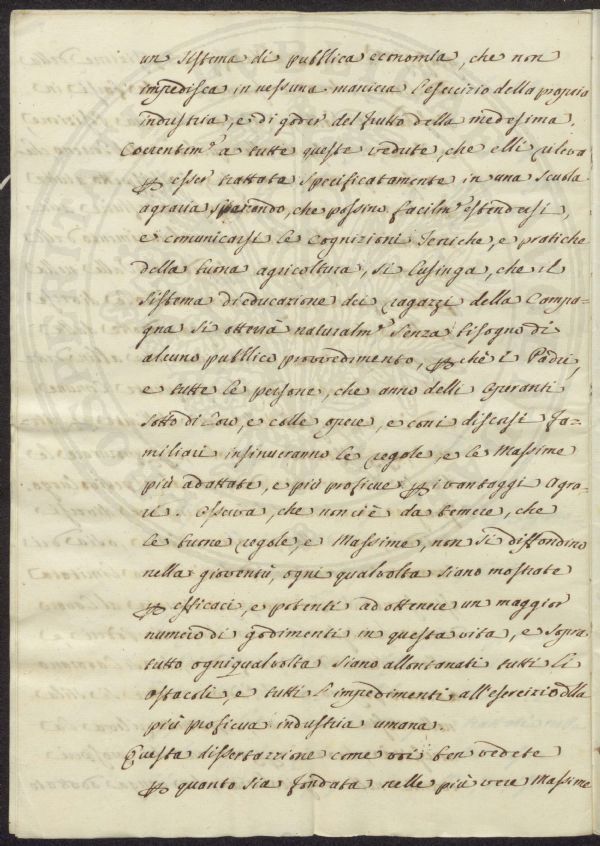 un sistema di pubblica economia, che non
impedisca in nessuna maniera l'esercizio della propria
industria, e di goder del frutto della medesima.
Coerentem.e a tutte queste vedute, che elli rileva
p esser trattate specificatamente in una scuola
agraria sperando, che possino facilm.e estendersi,
e comunicarsi le cognizioni teriche, e pratiche
della buona agricoltura, si lusinga, che il
sistema di educazione dei ragazzi della Campa=
gna si otterrà naturalm.e senza bisogno di
alcuno pubblico provvedimento, p chè i Padri,
e tutte le persone, che anno delli
sotto di loro, e colle opere, e con i discorsi fa=
miliari insinueranno le regole, e le Massime
più adattate, e più proficue p i vantaggi Agra=
ri. Osserva, che non ci è da temere, che
le buone regole, e Massime, non si diffondino
nella gioventù, ogni qualvolta siano mostrate
p efficaci, e potenti ad ottenere un maggior
numero di godimenti in questa vita, e sopra
tutto ogniqualvolta siano allontanati tutti li
ostacoli, e tutti l'impedimenti all'esercizio dlla
più proficua industria umana.
Questa dissertazione come voi ben vedete
p quanto sia fondata nelle più vere Massime